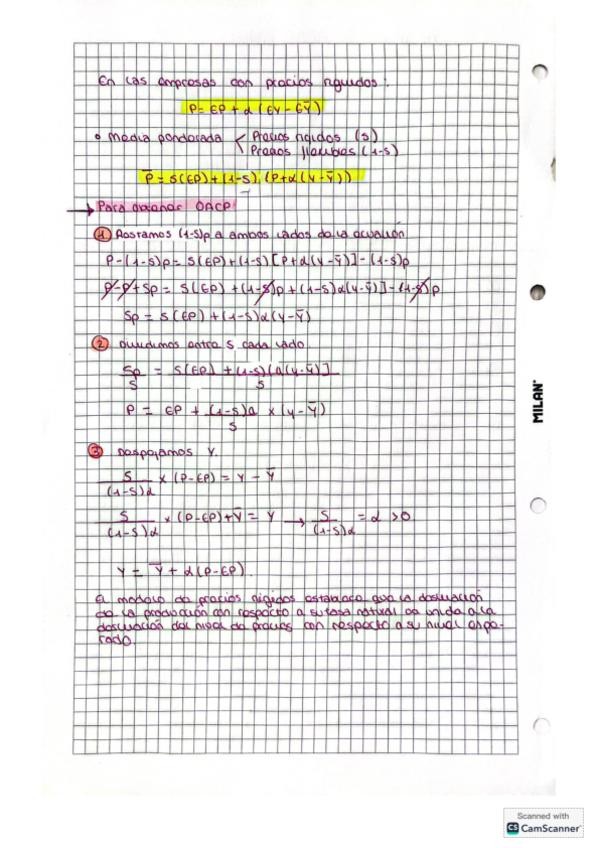 En las empresas con precios rígidos:
P = EP + α (EY - EȲ)
• Media ponderada < Precios rígidos (s)
Precios flexibles (1-s)
P̄ = s(EP) + (1-s) (P + α(Y - Ȳ))
→ Para obtener OACP:
1 Restamos (1-s)p a ambos lados de la ecuación
P - (1-s)p = s(EP) + (1-s) [P + α(Y - Ȳ)] - (1-s)p
p - p + sp = s(EP) + (1-s)p + (1-s)α(Y - Ȳ)] - (1-s)p
Sp = s(EP) + (1-s)α(Y - Ȳ)
2 Dividimos entre s cada lado
Sp/s = s(EP) + (1-s)[α(Y - Ȳ)]/s
P = EP + (1-s)α/s x (Y - Ȳ)
3 Despejamos Y.
s/(1-s)α x (P - EP) = Y - Ȳ
s/(1-s)α x (P - EP) + Ȳ = Y → s/(1-s)α = α > 0
Y = Ȳ + α(P - EP).
El modelo de precios rígidos establece que la desviación
de la producción con respecto a su tasa natural va unida a la
desviación del nivel de precios con respecto a su nivel espe-
rado.
MILAN
Scanned with
CS CamScanner